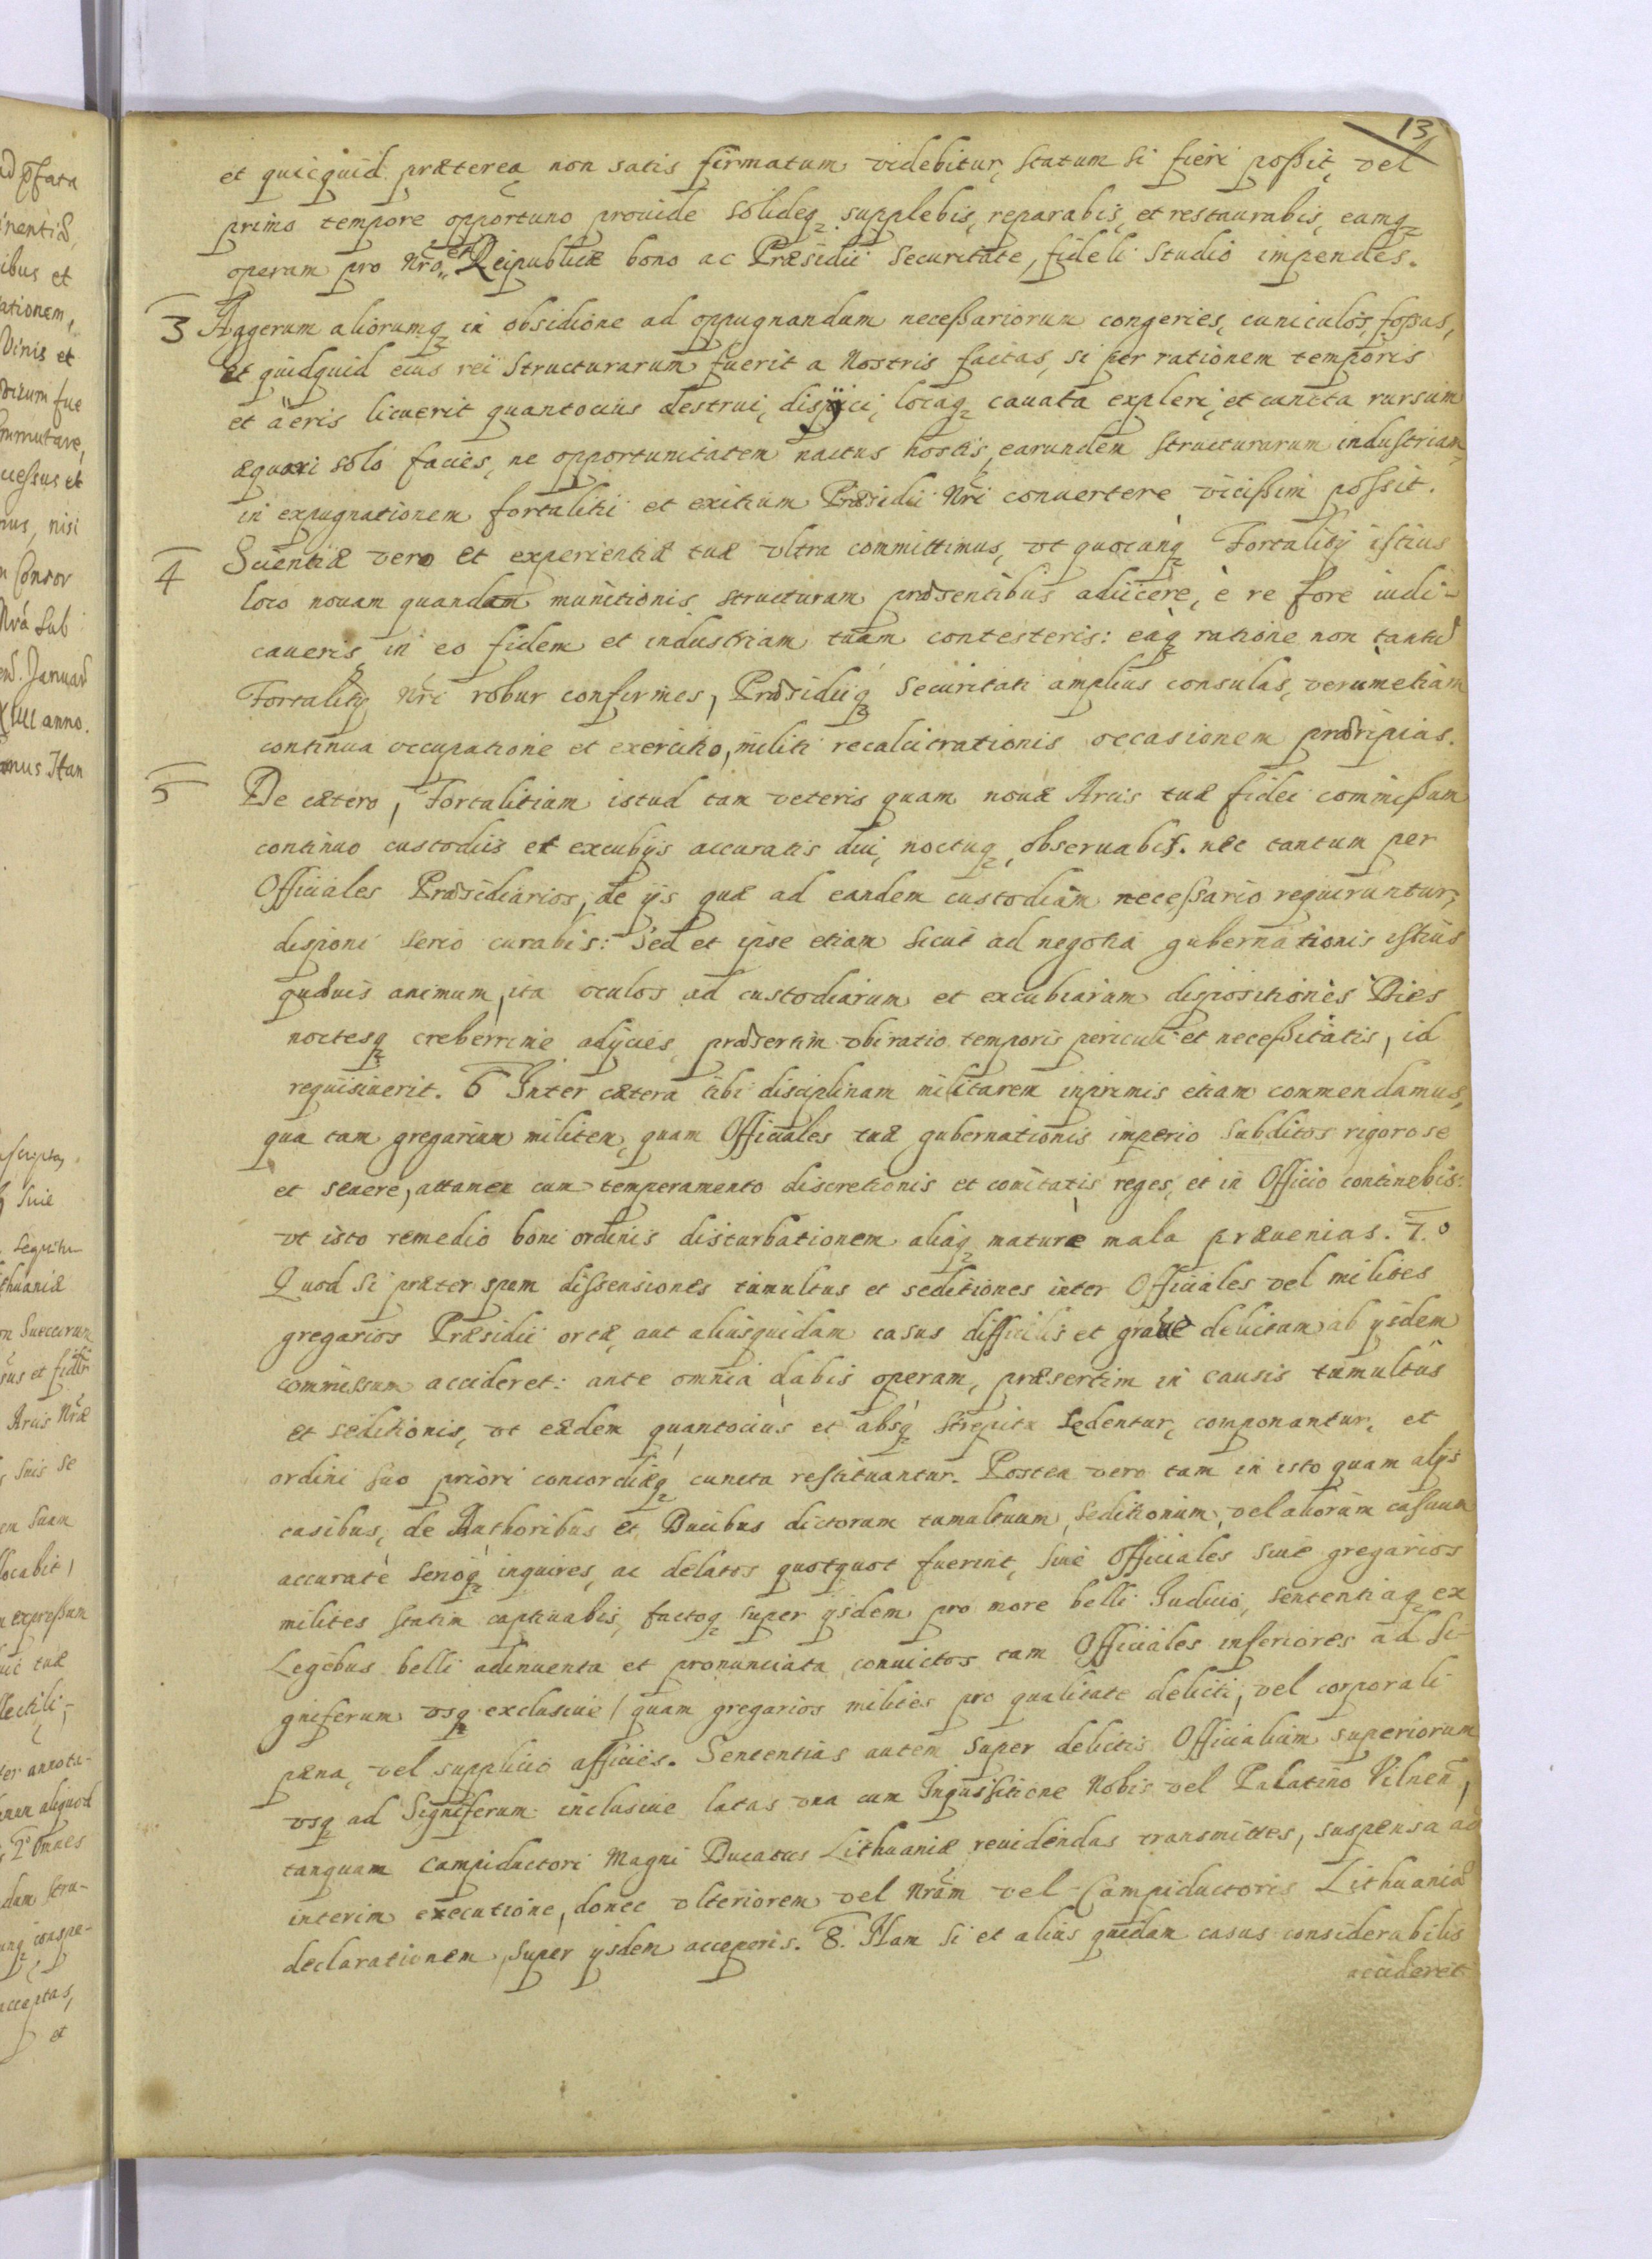 13
et quicquid præterea non satis firmatum videbitur, statum si fieri poßit, vel
primo tempore opportuno prouide solideq; supplebis, reparabis, et restaurabis, eamq;
operam pro Nro et Reipublicæ bono ac Præsidii securitate, fideli studio impendes.
3 Aggerum aliorumq; in obsidione ad oppugnandum neceßariorum congeries, cuniculos, foßas,
et quidquid eius rei structurarum fuerit a Nostris factas, si per rationem temporis
et aëris licuerit quantocius destrui, disijci, locaq; cauata expleri, et cuncta rursum
æquari solo facies, ne opportunitatem nactus hostis, earundem structurarum industriam,
in expugnationem fortalitii et exitium Præsidii Nri conuertere vicißim poßit.
4 Scientiæ vero et experientiæ tuæ vltra committimus, vt quocunq; Fortalitij istius
loco nouam quandam munitionis structuram præsentibus adiicere, è re fore iudi-
caueris, in eo fidem et industriam tuam contesteris: eaq; ratione non tantu
Fortalitij Nri robur confirmes, Præsidiiq; securitati amplius consulas, verumetiam
continua occupatione et exercitio, militi recalcitrationis occasionem præripias.
5 De cætero, Fortalitium istud tam veteris quam nouæ Arcis tuæ fidei commißum
continuo custodiis et excubijs accuratis diu, noctuq;, obseruabis. nec tantum per
Officiales Præsidiarios, de ijs quæ ad eandem custodiam neceßario requiruntur,
disponi serio curabis: sed et ipse etiam sicut ad negotia gubernationis istius
quæuis animum, ita oculos ad custodiarum et excubiarum dispositiones Dies
noctesq; creberrime adijcies, præsertim vbi ratio temporis periculi et neceßitatis, id
requisiuerit. 6 Inter cætera tibi disciplinam militarem inprimis etiam commendamus,
qua tam gregarium militem, quam Officiales tuæ gubernationis imperio subditos rigorose
et seuere, attamen cum temperamento discretionis et comitatis reges, et in Officio continebis:
vt isto remedio boni ordinis disturbationem aliaq; mature mala præuenias. 7.o
Quod si præter spem dissensiones tumultus et seditiones inter Officiales vel milites
gregarios Præsidii ortæ, aut alius quidam casus difficilis et graue delictum ab ijsdem
commissum accideret: ante omnia dabis operam, præsertim in causis tumultus
et seditionis, vt eædem quantocius et absq; strepitu sedentur, componantur, et
ordini suo priori concordiæq; cuncta restituantur. Postea vero tam in isto quam alijs
casibus, de Authoribus et Ducibus dictorum tumultuum, seditionum, vel aliorum casuum
accurate serioq; inquires, ac delatos quotquot fuerint, siue Officiales siue gregarios
milites statim captiuabis, factoq; super ijsdem pro more belli Iudicio, sententiaq; ex
Legibus belli adinuenta et pronunciata, conuictos tam Officiales inferiores ad Si-
gniferum vsq; exclusiue / quam gregarios milites pro qualitate delicti, vel corporali
pæna, vel supplicio afficies. Sententias autem super delictis Officialium superiorum
vsq; ad Signiferum inclusiue latas vna cum Inquisitione Nobis vel Palatino Vilnen,
tanquam Campiductori Magni Ducatus Lithuaniæ reuidendas transmittes, suspensa ad
interim executione, donec vlteriorem vel Nram vel Campiductoris Lithuaniæ
declarationem, super ijsdem acceperis. 8. Nam si et alius quidam casus considerabilis
accideret